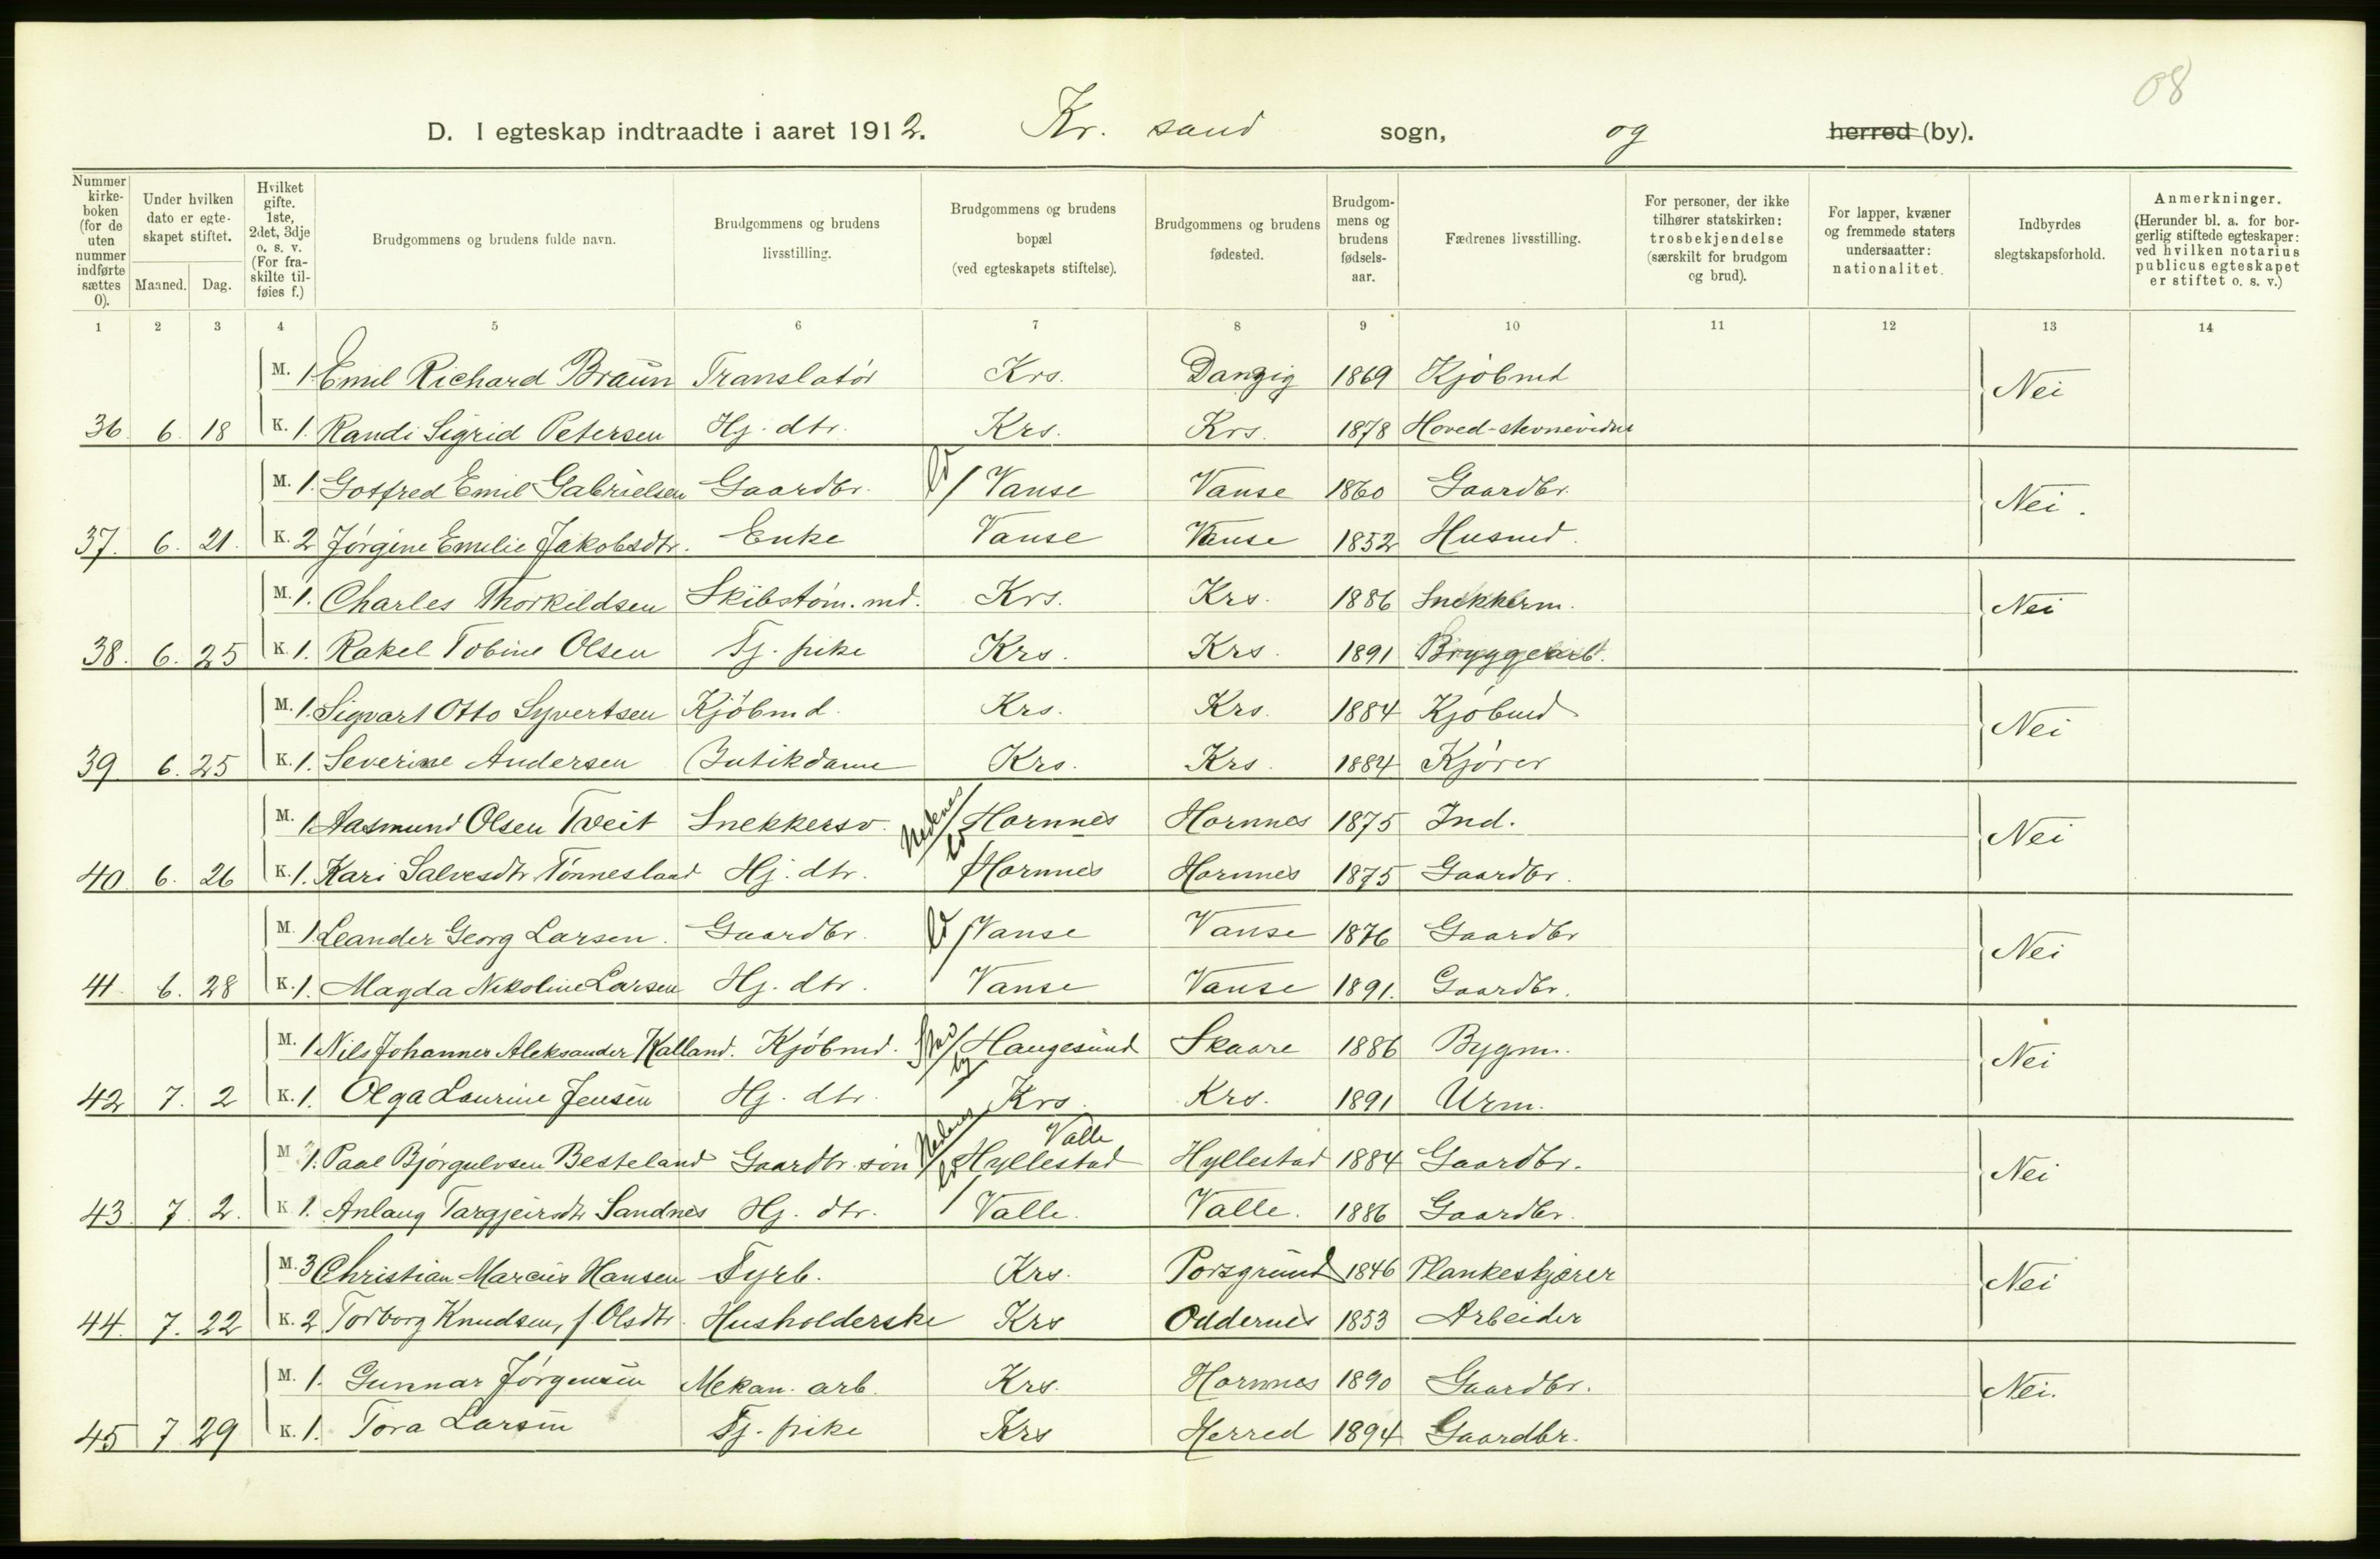 08
D. I egteskap indtraadte i aaret 1912. Kr. sand sogn, og herred (by).
Nummer kirkeboken (for de uten nummer indførte sættes 0). Under hvilken dato er egteskapet stiftet. Maaned. Dag. Hvilket gifte. 1ste, 2det, 3dje o. s. v. (For fraskilte tilføies f.) Brudgommens og brudens fulde navn. Brudgommens og brudens livsstilling. Brudgommens og brudens bopæl (ved egteskapets stiftelse). Brudgommens og brudens fødested. Brudgommens og brudens fødselsaar. Fædrenes livsstilling. For personer, der ikke tilhører statskirken: trosbekjendelse (særskilt for brudgom og brud). For lapper, kvæner og fremmede staters undersaatter: nationalitet. Indbyrdes slegtskapsforhold. Anmerkninger. (Herunder bl. a. for borgerlig stiftede egteskaper: ved hvilken notarius publicus egteskapet er stiftet o. s. v.)
1 2 3 4 5 6 7 8 9 10 11 12 13 14
M. 1. Emil Richard Braun Translatør Krs. Danzig 1869 Kjøbmd Nei
36 6. 18 K. 1. Randi Sigrid Petersen Hj. dtr. Krs. Krs. 1878 Hoved-stevnevidne
M. 1. Gotfred Emil Gabrielsen Gaardbr. Vanse Vanse 1860 Gaardbr. Nei.
37. 6. 21. K. 2 Jørgine Emilie Jakobsdtr. Enke Vanse Vanse 1852 Husmd.
M. 1. Charles Thorkildsen Skibstøm. md. Krs. Krs. 1886 Snekkerm. Nei
38. 6. 25 K. 1. Rakel Tobine Olsen Tj. pike Krs. Krs. 1891 Bryggearb.
M. 1. Sigvart Otto Syvertsen Kjøbmd. Krs. Krs. 1884 Kjøbmd Nei
39 6. 25 K. 1. Severine Andersen Butikdame Krs. Krs. 1884 Kjører
M. 1 Aasmund Olsen Tveit Snekkersv. Hornnes Hornnes 1875 Ind. Nei
40 6. 26 K. 1. Kari Salvesdtr. Tønnesland Hj. dtr. Hornnes Hornnes 1875 Gaardbr.
M. 1. Leander Georg Larsen. Gaardbr. Vanse Vanse 1876 Gaardbr Nei
41. 6. 28 K. 1. Magda Nikoline Larsen Hj. dtr. Vanse Vanse 1891. Gaardbr.
M. 1 Nils Johannes Aleksander Kalland. Kjøbmd. Haugesund Skaare 1886 Bygm. Nei
42 7. 2 K. 1. Olga Laurine Jensen Hj. dtr. Krs. Krs. 1891 Urm.
Valle
M 1. Paal Bjørgulvsen Besteland Gaardbr. søn Hyllestad Hyllestad 1884 Gaardbr. Nei
43. 7. 2. K 1. Anlaug Targjeirsdtr Sandnes Hj. dtr. Valle. Valle. 1886 Gaardbr.
M. 3 Christian Marcus Hansen Fyrb. Krs. Porsgrund 1846 Plankeskjærer Nei
44. 7. 22 K. 2 Torborg Knudsen, f. Olsdtr. Husholderske Krs Oddernes 1853 Arbeider
M. 1. Gunnar Jørgensen Mekan. arb. Krs. Hornnes 1890 Gaardbr. Nei.
45 7 29 K. 1. Tora Larsen Tj. pike Krs Herred 1894 Gaardbr.